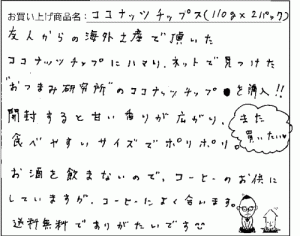 お買い上げ商品名：ココナッツチップス(110g×2パック)
友人からの海外土産で頂いた
ココナッツチップにハマり、ネットで見つけた
"おつまみ研究所"のココナッツチップ●を購入!!
開封すると甘い香りが広がり、
食べやすいサイズでポリポリ。
また
買いたい♡
お酒を飲まないので、コーヒーのお供に
していますが、コーヒーによく合います。
送料無料でありがたいです